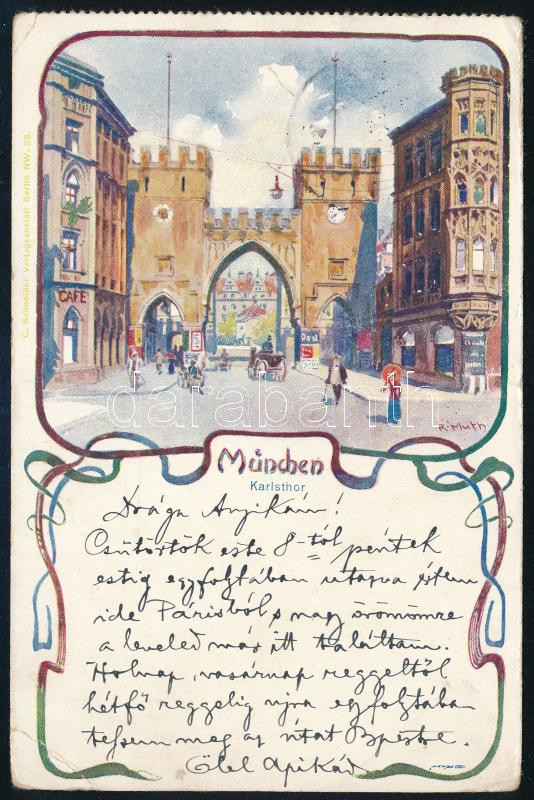 C. Schneider Verlagsanstalt Berlin NW. 23.
CAFE
R. Muth
darabanth
München
Karlsthor
Drága Anyikám!
Csütörtök este 8-tól péntek
estig egyfolytában utazva értem
ide Párisból s nagy örömömre
a leveled már itt találtam.
Holnap, vasárnap reggeltől
hétfő reggelig ujra egyfolytába
teszem meg az útat Bpestre.
Ölel Apikád